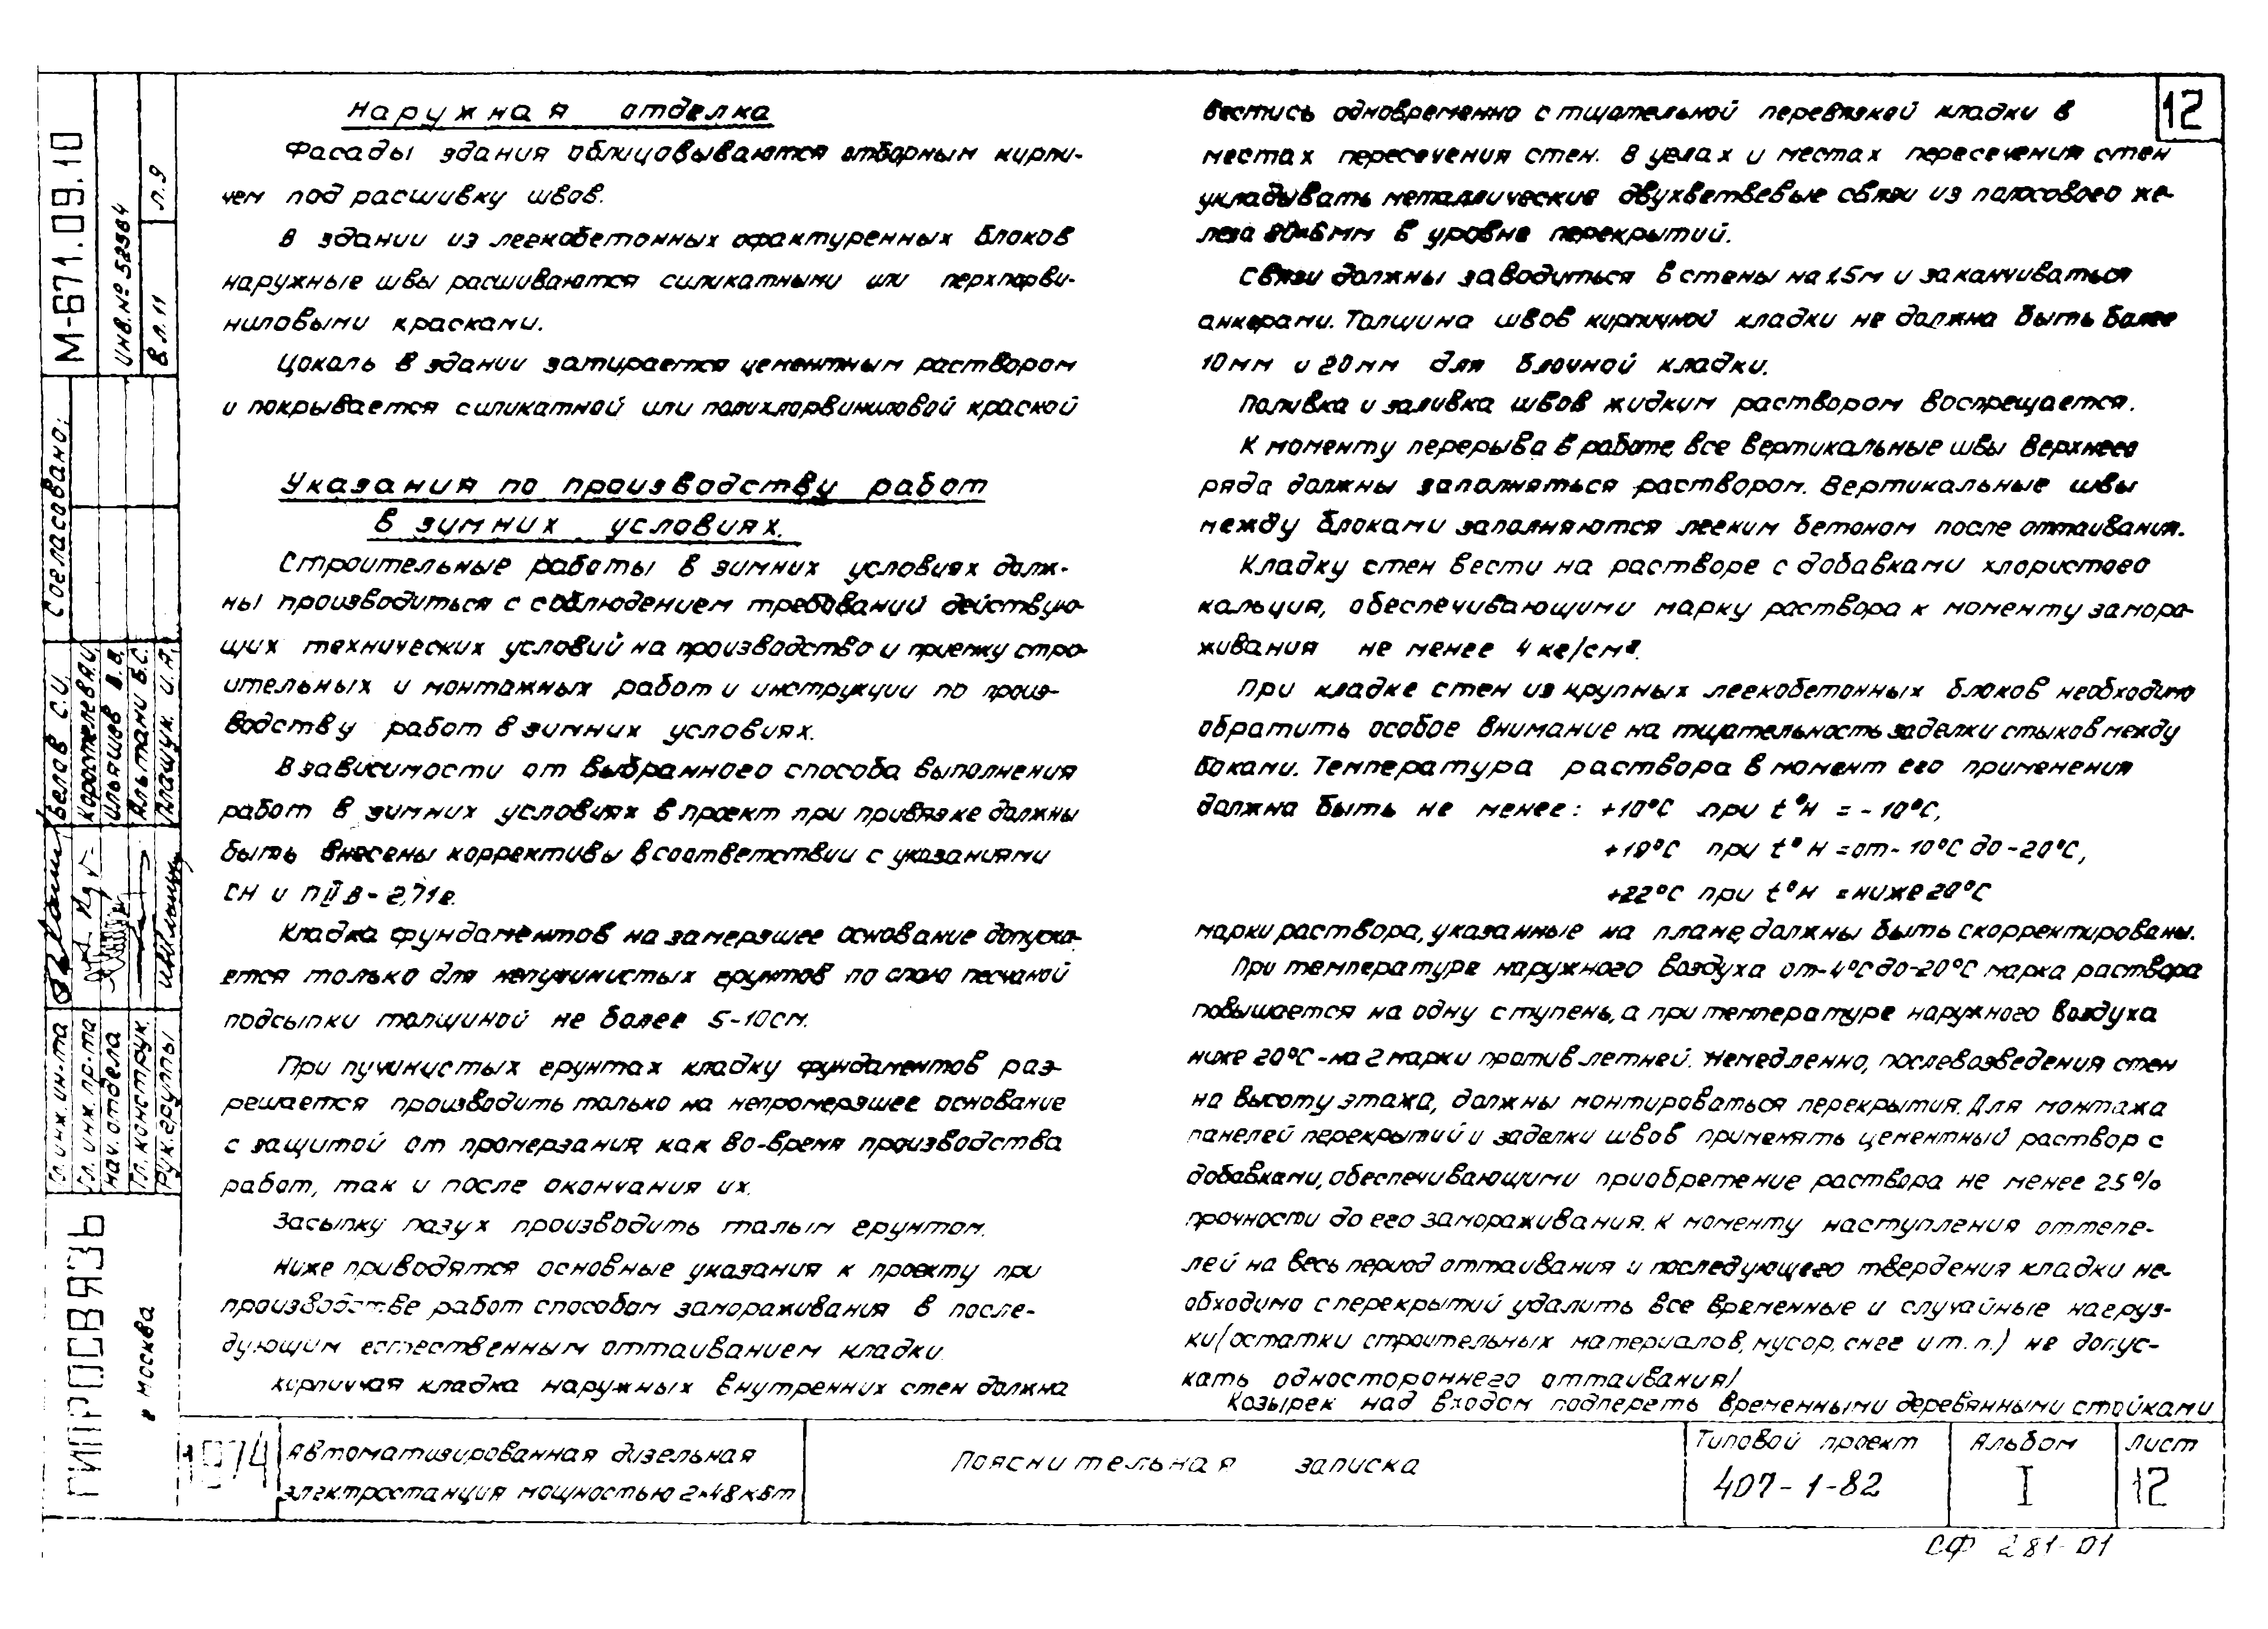 12
Наружная отделка
Фасады здания облицовываются отборным кирпи-
чем под расшивку швов.
В здании из легкобетонных офактуренных блоков
наружные швы расшиваются силикатными или перхлорви-
ниловыми красками.
Цоколь в здании затирается цементным раствором
и покрывается силикатной или полихлорвиниловой краской
Указания по производству работ
в зимних условиях.
Строительные работы в зимних условиях долж-
ны производиться с соблюдением требований действую-
щих технических условий на производство и приемку стро-
ительных и монтажных работ и инструкции по произ-
водству работ в зимних условиях.
В зависимости от выбранного способа выполнения
работ в зимних условиях в проект при привязке должны
быть внесены коррективы в соответствии с указаниями
СН и П II В-2,71г.
Кладка фундаментов на замерзшее основание допуска-
ется только для непучинистых грунтов по слою песчаной
подсыпки толщиной не более 5-10см.
При пучинистых грунтах кладку фундаментов раз-
решается производить только на непромерзшее основание
с защитой от промерзания как во-время производства
работ, так и после окончания их.
Засыпку пазух производить талым грунтом.
Ниже приводятся основные указания к проекту при
производстве работ способом замораживания в после-
дующим естественным оттаиванием кладки.
Кирпичная кладка наружных внутренних стен должна
вестись одновременно с тщательной перевязкой кладки в
местах пересечения стен. В углах и местах пересечения стен
укладывать металлические двухветвевые связи из полосового же-
леза 80×6мм в уровне перекрытий.
Связи должны заводиться в стены на 1,5м и заканчиваться
анкерами. Толщина швов кирпичной кладки не должна быть более
10мм и 20мм для блочной кладки.
Поливка и заливка швов жидким раствором воспрещается.
К моменту перерыва в работе, все вертикальные швы верхнего
ряда должны заполняться раствором. Вертикальные швы
между блоками заполняются легким бетоном после оттаивания.
Кладку стен вести на растворе с добавками хлористого
кальция, обеспечивающими марку раствора к моменту замора-
живания не менее 4 кг/см².
При кладке стен из крупных легкобетонных блоков необходимо
обратить особое внимание на тщательность заделки стыков между
боками. Температура раствора в момент его применения
должна быть не менее: +10°С при t°н = -10°С,
+18°С при t°н = от-10°С до-20°С,
+22°С при t°н = ниже 20°С
марки раствора, указанные на плане, должны быть скорректированы.
При температуре наружного воздуха от-4°С до-20°С марка раствора
повышается на одну ступень, а при температуре наружного воздуха
ниже 20°С-на 2 марки против летней. Немедленно, после возведения стен
на высоту этажа, должны монтироваться перекрытия. Для монтажа
панелей перекрытий и заделки швов применять цементный раствор с
добавками, обеспечивающими приобретение раствора не менее 25%
прочности до его замораживания. К моменту наступления оттепе-
лей на весь период оттаивания и последующего твердения кладки не-
обходимо с перекрытий удалить все временные и случайные нагруз-
ки (остатки строительных материалов, мусор, снег и т. п.) не допус-
кать одностороннего оттаивания!
Козырек над входом подпереть временными деревянными стойками
М-671.09.10
ИНВ.№ 52984
в л.11
л.9
Согласовано:
Белов С.И.
Коростелев А.И.
Ильяшев В.В.
Альтани Б.С.
Плащук И.А.
Гл. инж. ин-та
Гл. инж. пр-та
Нач. отдела
Гл. конструк.
Рук. группы
ГИПРОСВЯЗЬ
г Москва
1974
Автоматизированная дизельная
электростанция мощностью 2×48 кВт
Пояснительная записка
Типовой проект
407-1-82
Альбом
I
Лист
12
СФ 281-01